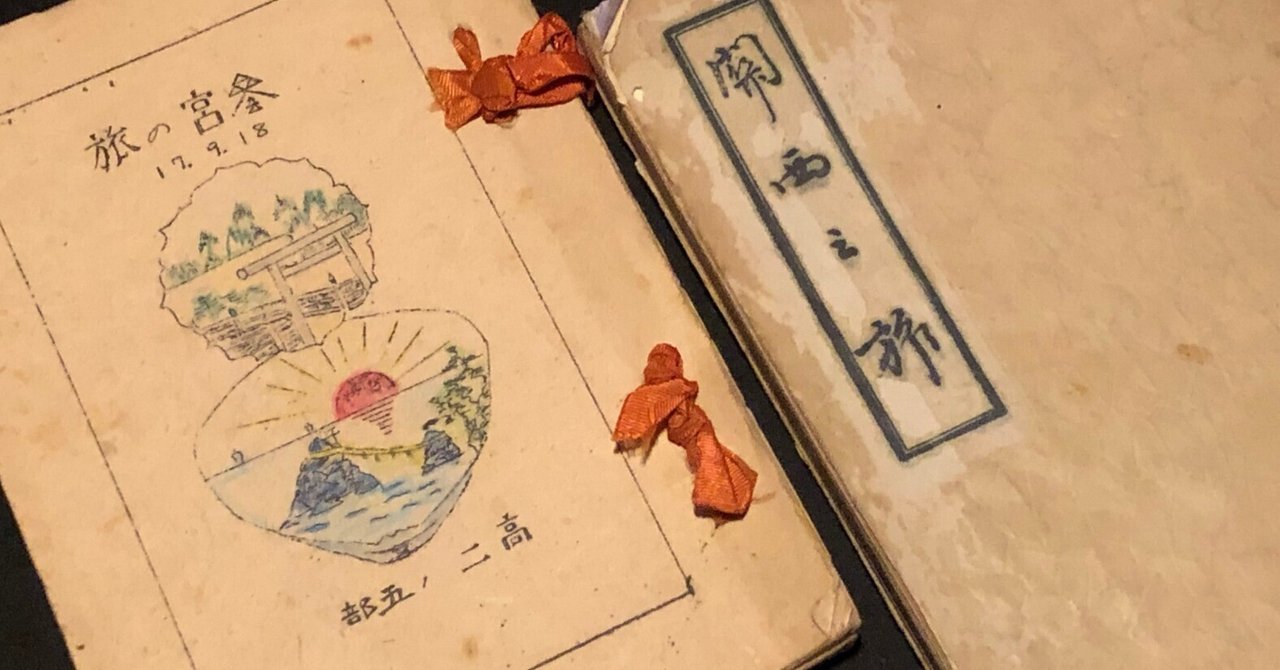 参宮の旅
17.9.18
高二ノ五部
関西之旅